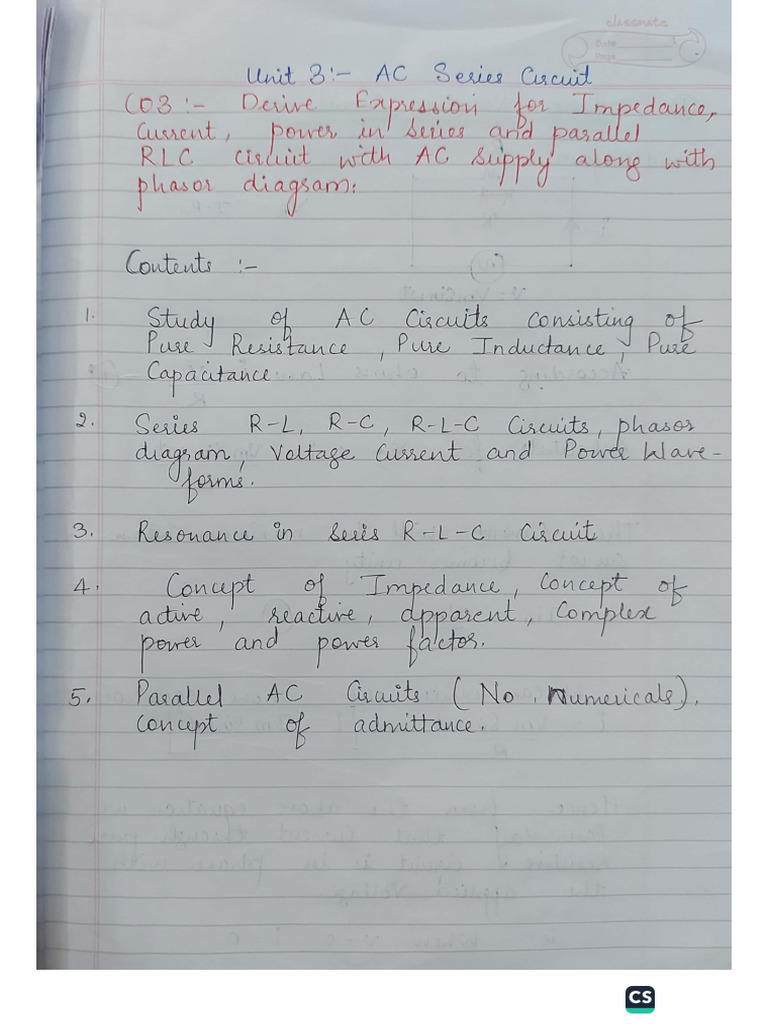 classmate
Date
Page
Unit 3:- AC Series Circuit
CO3:- Derive Expression for Impedance,
Current, power in series and parallel
RLC circuit with AC Supply along with
phasor diagram:
Contents :-
1. Study of AC Circuits consisting of
Pure Resistance, Pure Inductance, Pure
Capacitance.
2. Series R-L, R-C, R-L-C Circuits, phasor
diagram, Voltage Current and Power Wave-
forms.
3. Resonance in Series R-L-C Circuit
4. Concept of Impedance, Concept of
active, reactive, apparent, Complex
power and power factor.
5. Parallel AC Circuits (No Numericals).
Concept of admittance.
CS